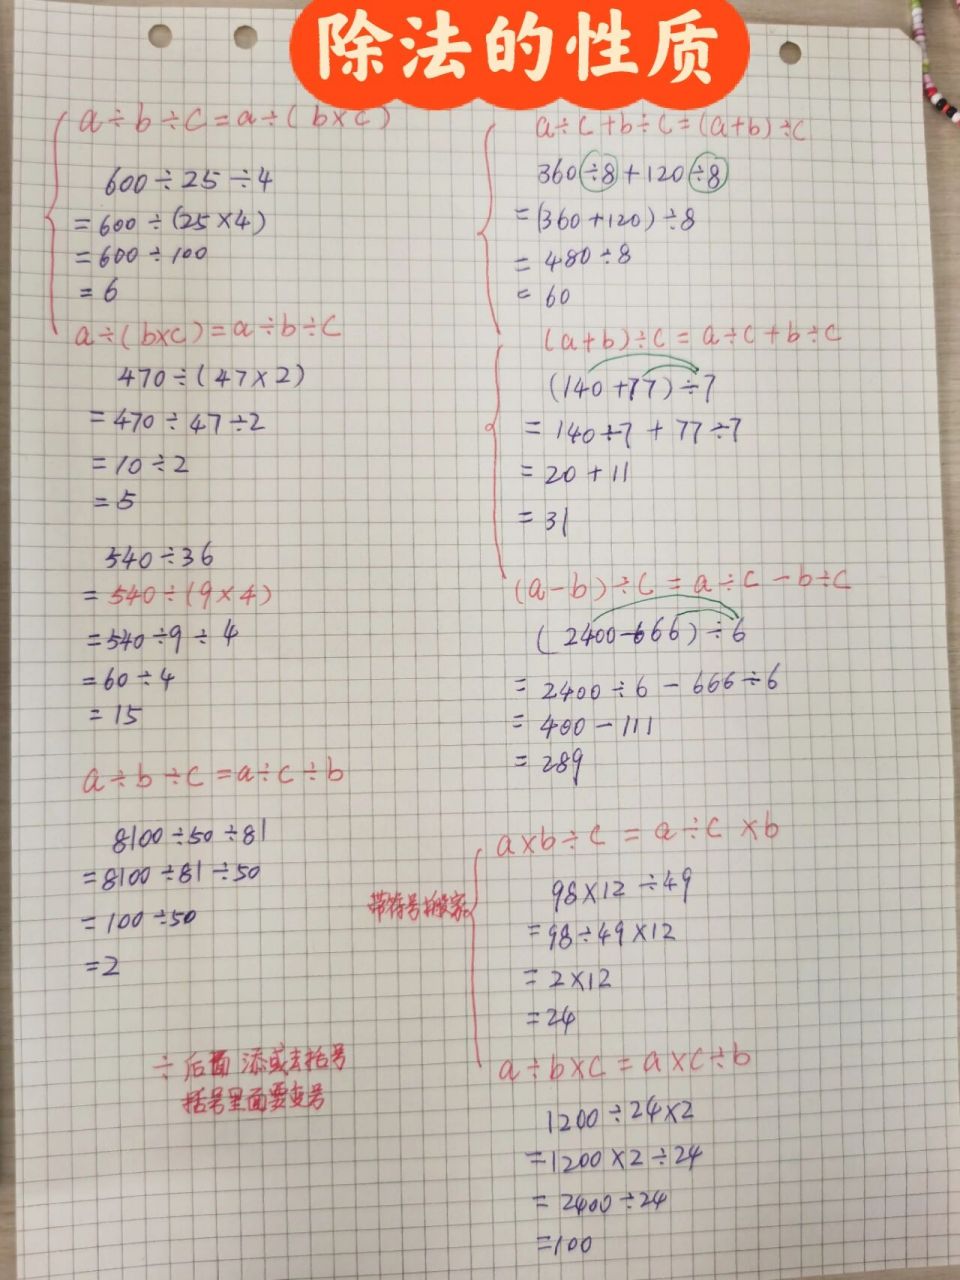 除法的性质
a÷b÷c=a÷(b×c)
600÷25÷4
=600÷(25×4)
=600÷100
=6
a÷(b×c)=a÷b÷c
470÷(47×2)
=470÷47÷2
=10÷2
=5
540÷36
=540÷(9×4)
=540÷9÷4
=60÷4
=15
a÷b÷c=a÷c÷b
8100÷50÷81
=8100÷81÷50
=100÷50
=2
÷后面添或去括号
括号里面要变号
a÷c+b÷c=(a+b)÷c
360÷8+120÷8
=(360+120)÷8
=480÷8
=60
(a+b)÷c=a÷c+b÷c
(140+77)÷7
=140÷7+77÷7
=20+11
=31
(a-b)÷c=a÷c-b÷c
(2400-666)÷6
=2400÷6-666÷6
=400-111
=289
带符号搬家
a×b÷c=a÷c×b
98×12÷49
=98÷49×12
=2×12
=24
a÷b×c=a×c÷b
1200÷24×2
=1200×2÷24
=2400÷24
=100